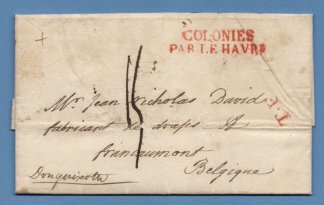 COLONIES
PAR LE HAVRE
T.F.
Mr. Jean Nicholas David
fabricant de draps à
francumont
Belgique